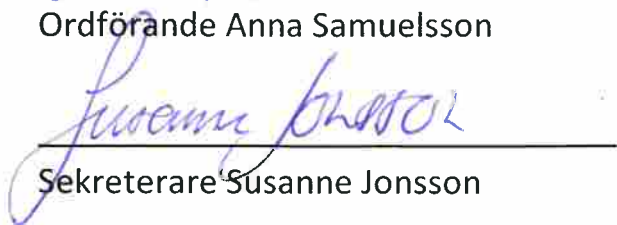 Ordförande Anna Samuelsson
Susanne Jonsson
Sekreterare Susanne Jonsson